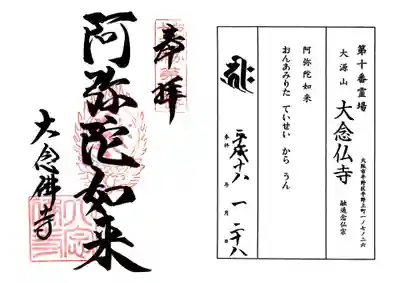 第十番霊場
大源山 大念仏寺
大阪市平野区平野上町一ノ七ノ二六
融通念仏宗
阿弥陀如来
おんあみりた ていせい から うん
平成十八 年 一 月 二十八
奉拝
阿弥陀如来
大念佛寺